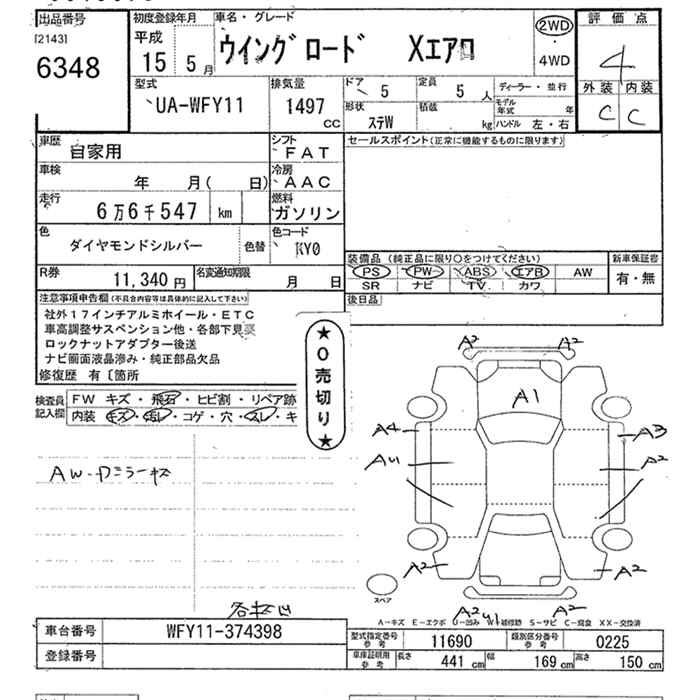 出品番号
[2143]
6348
初度登録年月
平成
15 5月
車名・グレード
ウイングロード Xエアロ
2WD
・
4WD
評価点
4
外装 内装
C C
型式
UA-WFY11
排気量
1497 CC
ドア 5
定員 5 人
形状 ステW
積載 kg
ディーラー・並行
モデル年式 年
ハンドル 左・右
車歴 自家用
シフト FAT
セールスポイント(正常に機能するものに限ります)
車検 年 月( 日)
冷房 AAC
走行 6万6千547 km
燃料 ガソリン
色 ダイヤモンドシルバー
色替
色コード KY0
装備品(純正品に限り○をつけてください)
新車保証書
PS PW ABS エアB AW
有・無
SR ナビ TV カワ
R券 11,340円
名変通知期限 月 日
後日品
注意事項申告欄(不具合内容等は具体的に記入して下さい)
社外17インチアルミホイール・ETC
車高調整サスペンション他・各部下見要
ロックナットアダプター後送
ナビ画面液晶滲み・純正部品欠品
修復歴 有〔箇所
★0売切り★
検査員記入欄
FW キズ・飛石・ヒビ割・リペア跡
内装 キズ・汚レ・コゲ・穴・スレ・キ
AW・Dミラーキズ
A2 A2
A1
A4 A3
AU A2
A2 A2
スペア
A2 U1 A2
A-キズ E-エクボ U-凹み W-補修跡 S-サビ C-腐食 XX-交換済
車台番号 WFY11-374398
登録番号
型式指定番号 参考 11690
類別区分番号 参考 0225
車庫証明用 参考 長さ 441 cm 幅 169 cm 高さ 150 cm